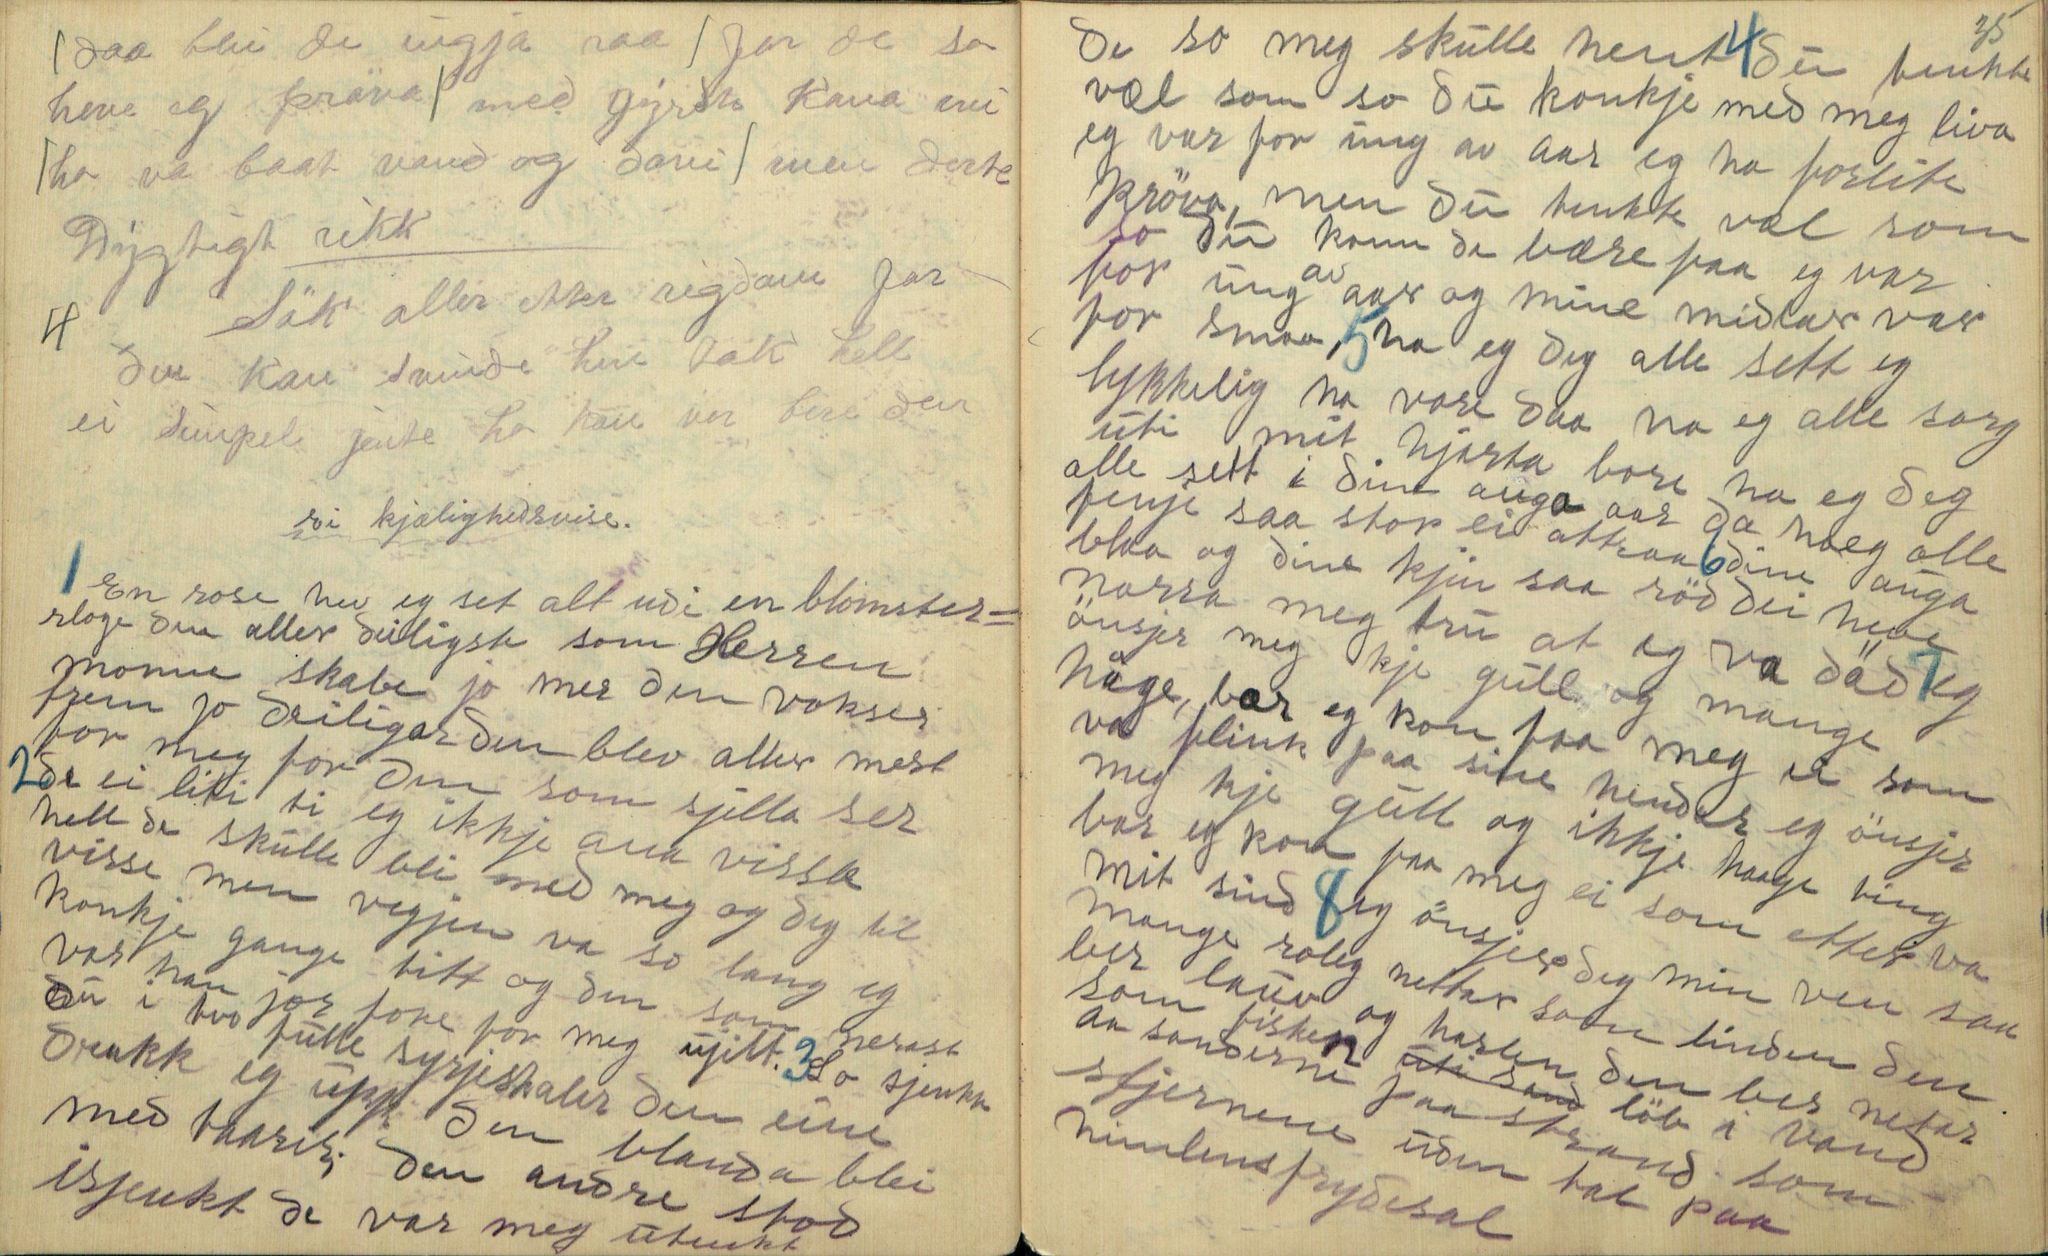 / daa blei de ingja raa / for de so
heve eg pröva / med gyrdt kava mi
/ ho va baat vand og dovi / men derte
Dygtigt rikk
4 Sök aller etter rigdom for
den kan svinde hen søk hell
ei simpel jente ho kan ver bere den
ei kjælighedsvise.
1 En rose hev eg set alt udi en blomster=
sloge den aller deiligste som Herren
monne skabe jo mer den vokser
frem jo deiligar den blev aller mest
for meg for den som sjella ser
2 de ei liti ti eg ikkje ana visste
hell de skulle bli med meg og deg til
visse men vegjen va so lang eg
konkje gange titt og den som nerast
var han jor fore for meg ujilt. 3 So sjenkte
du i tvo fulle syrjeskaler den eine
drakk eg upp den blanda blei
med taarir, den andre stod
isjenkt de var meg utenkt
35
de so meg skulle hent 4 du tenkte
væl som so du konkje med meg liva
eg var for ung av aar eg ha forlite
kröva, men du tenkte væl som
so du konn de bære faa eg var
for ung av aar og mine midlar var
for smaa, 5 ha eg deg alle sett eg
lykkelig ha vore daa ha eg alle sorg
uti mit hjarta bore ha eg deg
alle sett i dine auga aar da ha eg alle
fenje saa stor ei attraa 6 dine auga
blaa og dine kjin saa röd dei heve
narra meg tru at eg va däd 7 eg
önsjer meg kje gull og mange
håge, bær eg kon faa meg ei som
va flink paa sine hender eg önsjer
meg kje gull og ikkje haage ting
bar eg kon faa meg ei som etter va
mit sind 8 eg önsjer deg min ven saa
mange rolig nettar som linden den
ber lauv og haslen den ber netar
som fisken uti sand löb i vand
aa sanderne paa strand som
stjernene uden tal paa
himlens frydesal